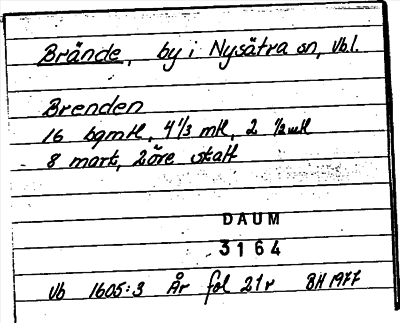 Brände, by i Nysätra sn, Vbl.
Brenden
16 bgmkl, 4 1/3 mkl, 2 1/2 mkl
8 mart, 2 öre skatt
DAUM
3164
Vb 1605:3 År fol 21v BH 1977